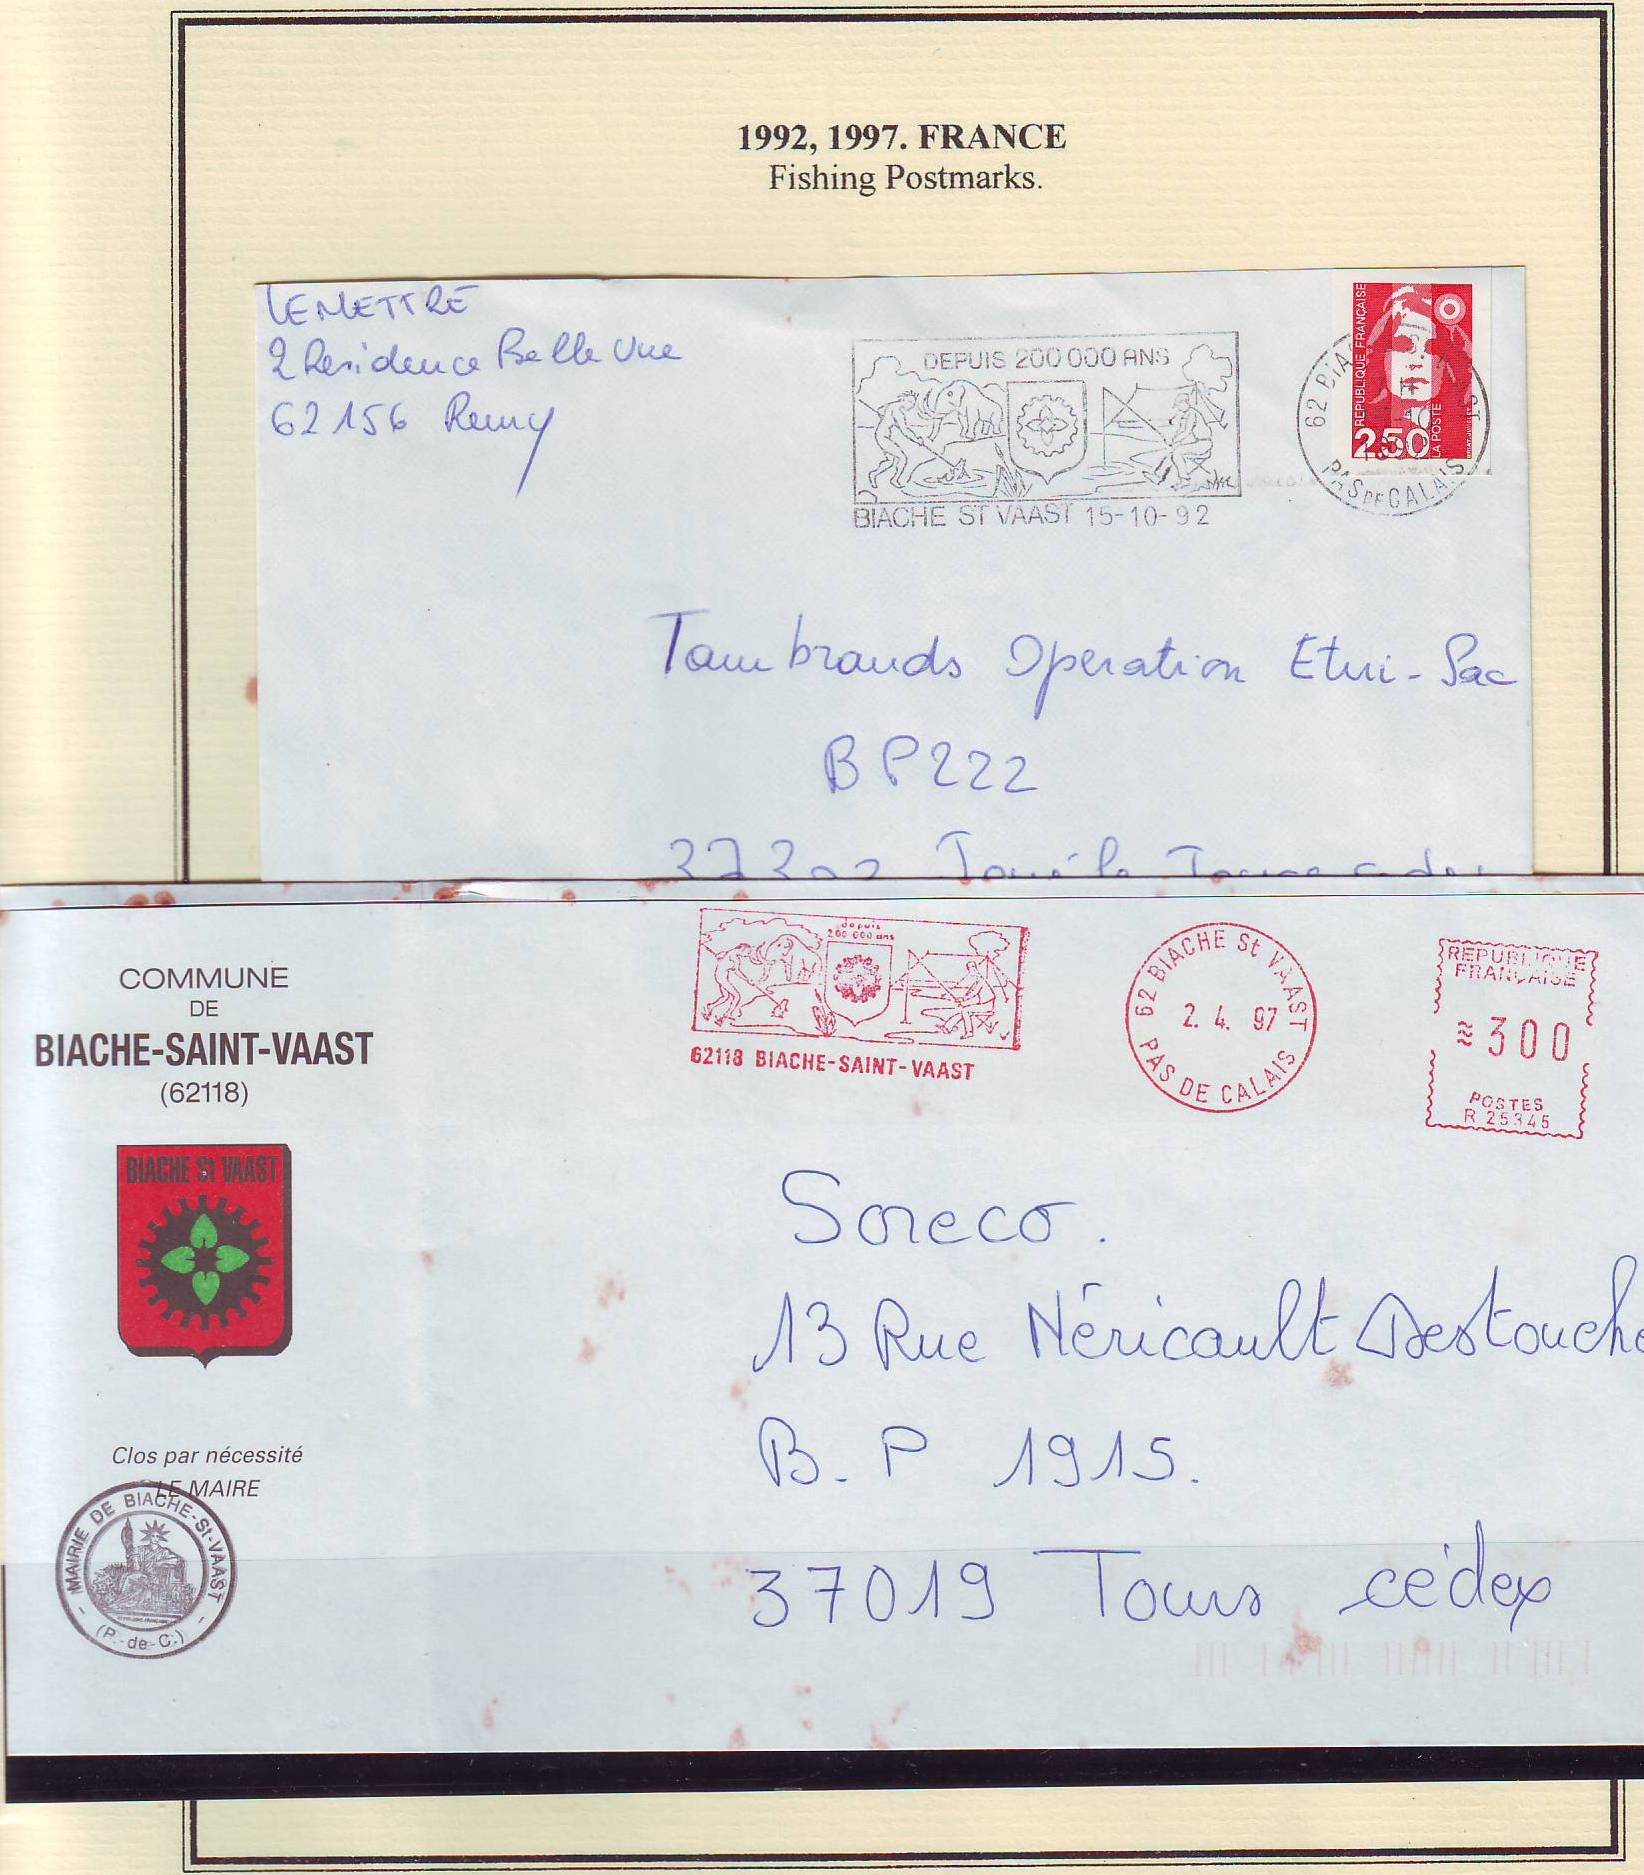 1992, 1997. FRANCE
Fishing Postmarks.
LEMETTRE
2 Residence Belle Vue
62156 Remy
DEPUIS 200 000 ANS
BIACHE ST VAAST 15-10-92
62 BIA ST
PAS DE CALAIS
REPUBLIQUE FRANÇAISE
2,50
LA POSTE
Tambrands Operation Etui-Sac
BP222
COMMUNE
DE
BIACHE-SAINT-VAAST
(62118)
BIACHE St VAAST
Clos par nécessité
LE MAIRE
MAIRIE DE BIACHE-St-VAAST
(P.-de-C.)
depuis
200 000 ans
62118 BIACHE-SAINT-VAAST
62 BIACHE St VAAST
2. 4. 97
PAS DE CALAIS
REPUBLIQUE
FRANÇAISE
300
POSTES
R 25345
Soreco.
13 Rue Néricault Destouche
B.P 1915.
37019 Tours cédex